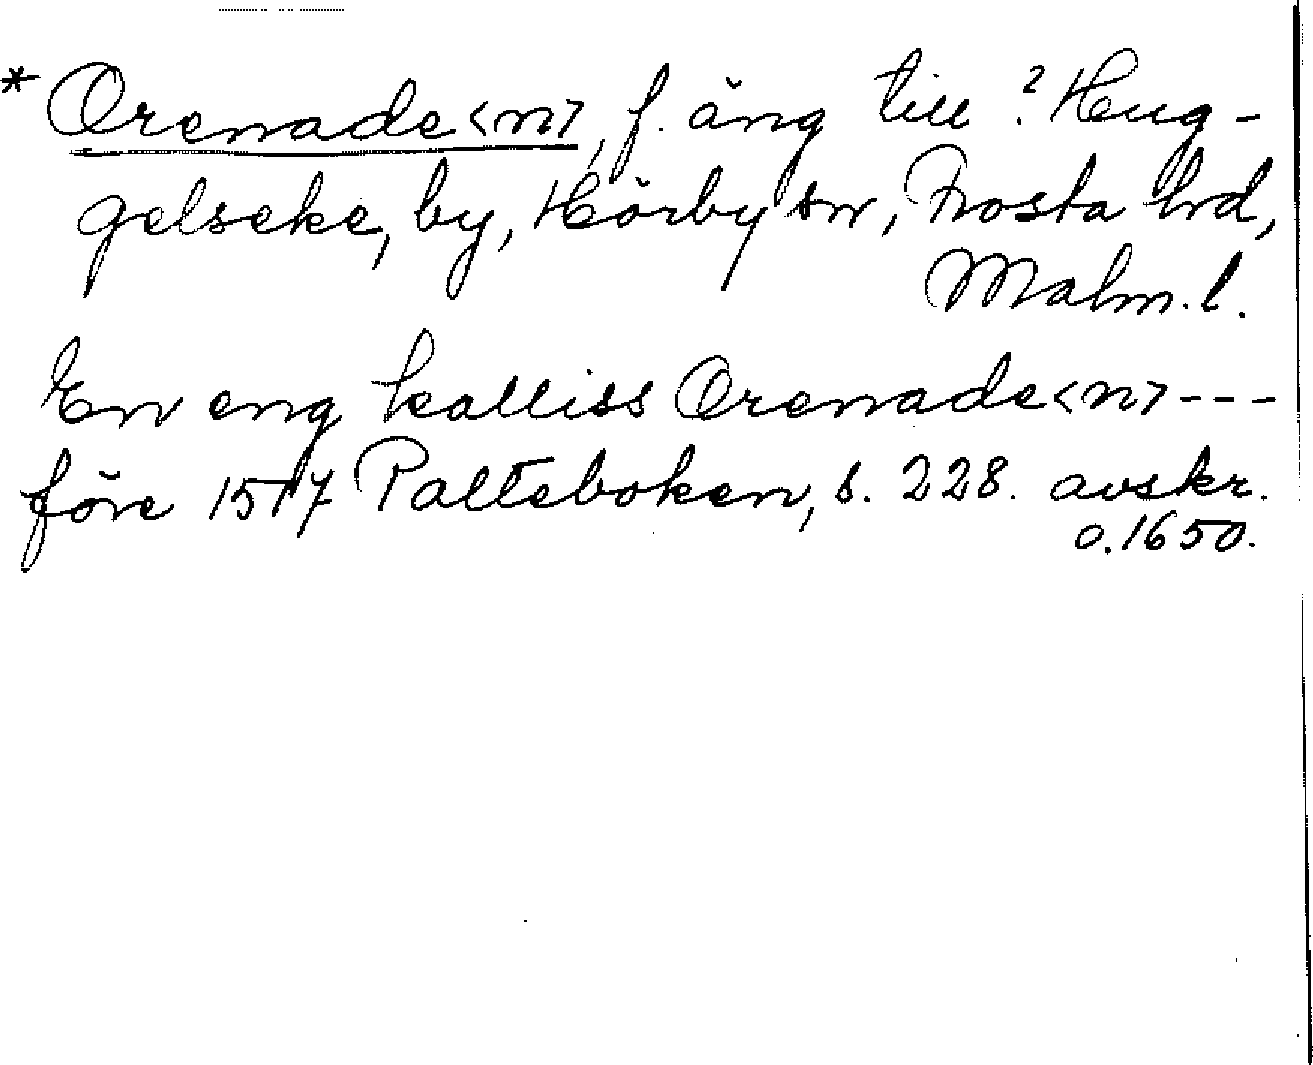 * Orenade<n>, f. äng till ? Hug-
gelseke, by, Hörby sn, Frosta hd,
Malm. l.
En eng kalliss Orenade<n> - - -
före 1517 Palteboken, s. 228. avskr.
o. 1650.